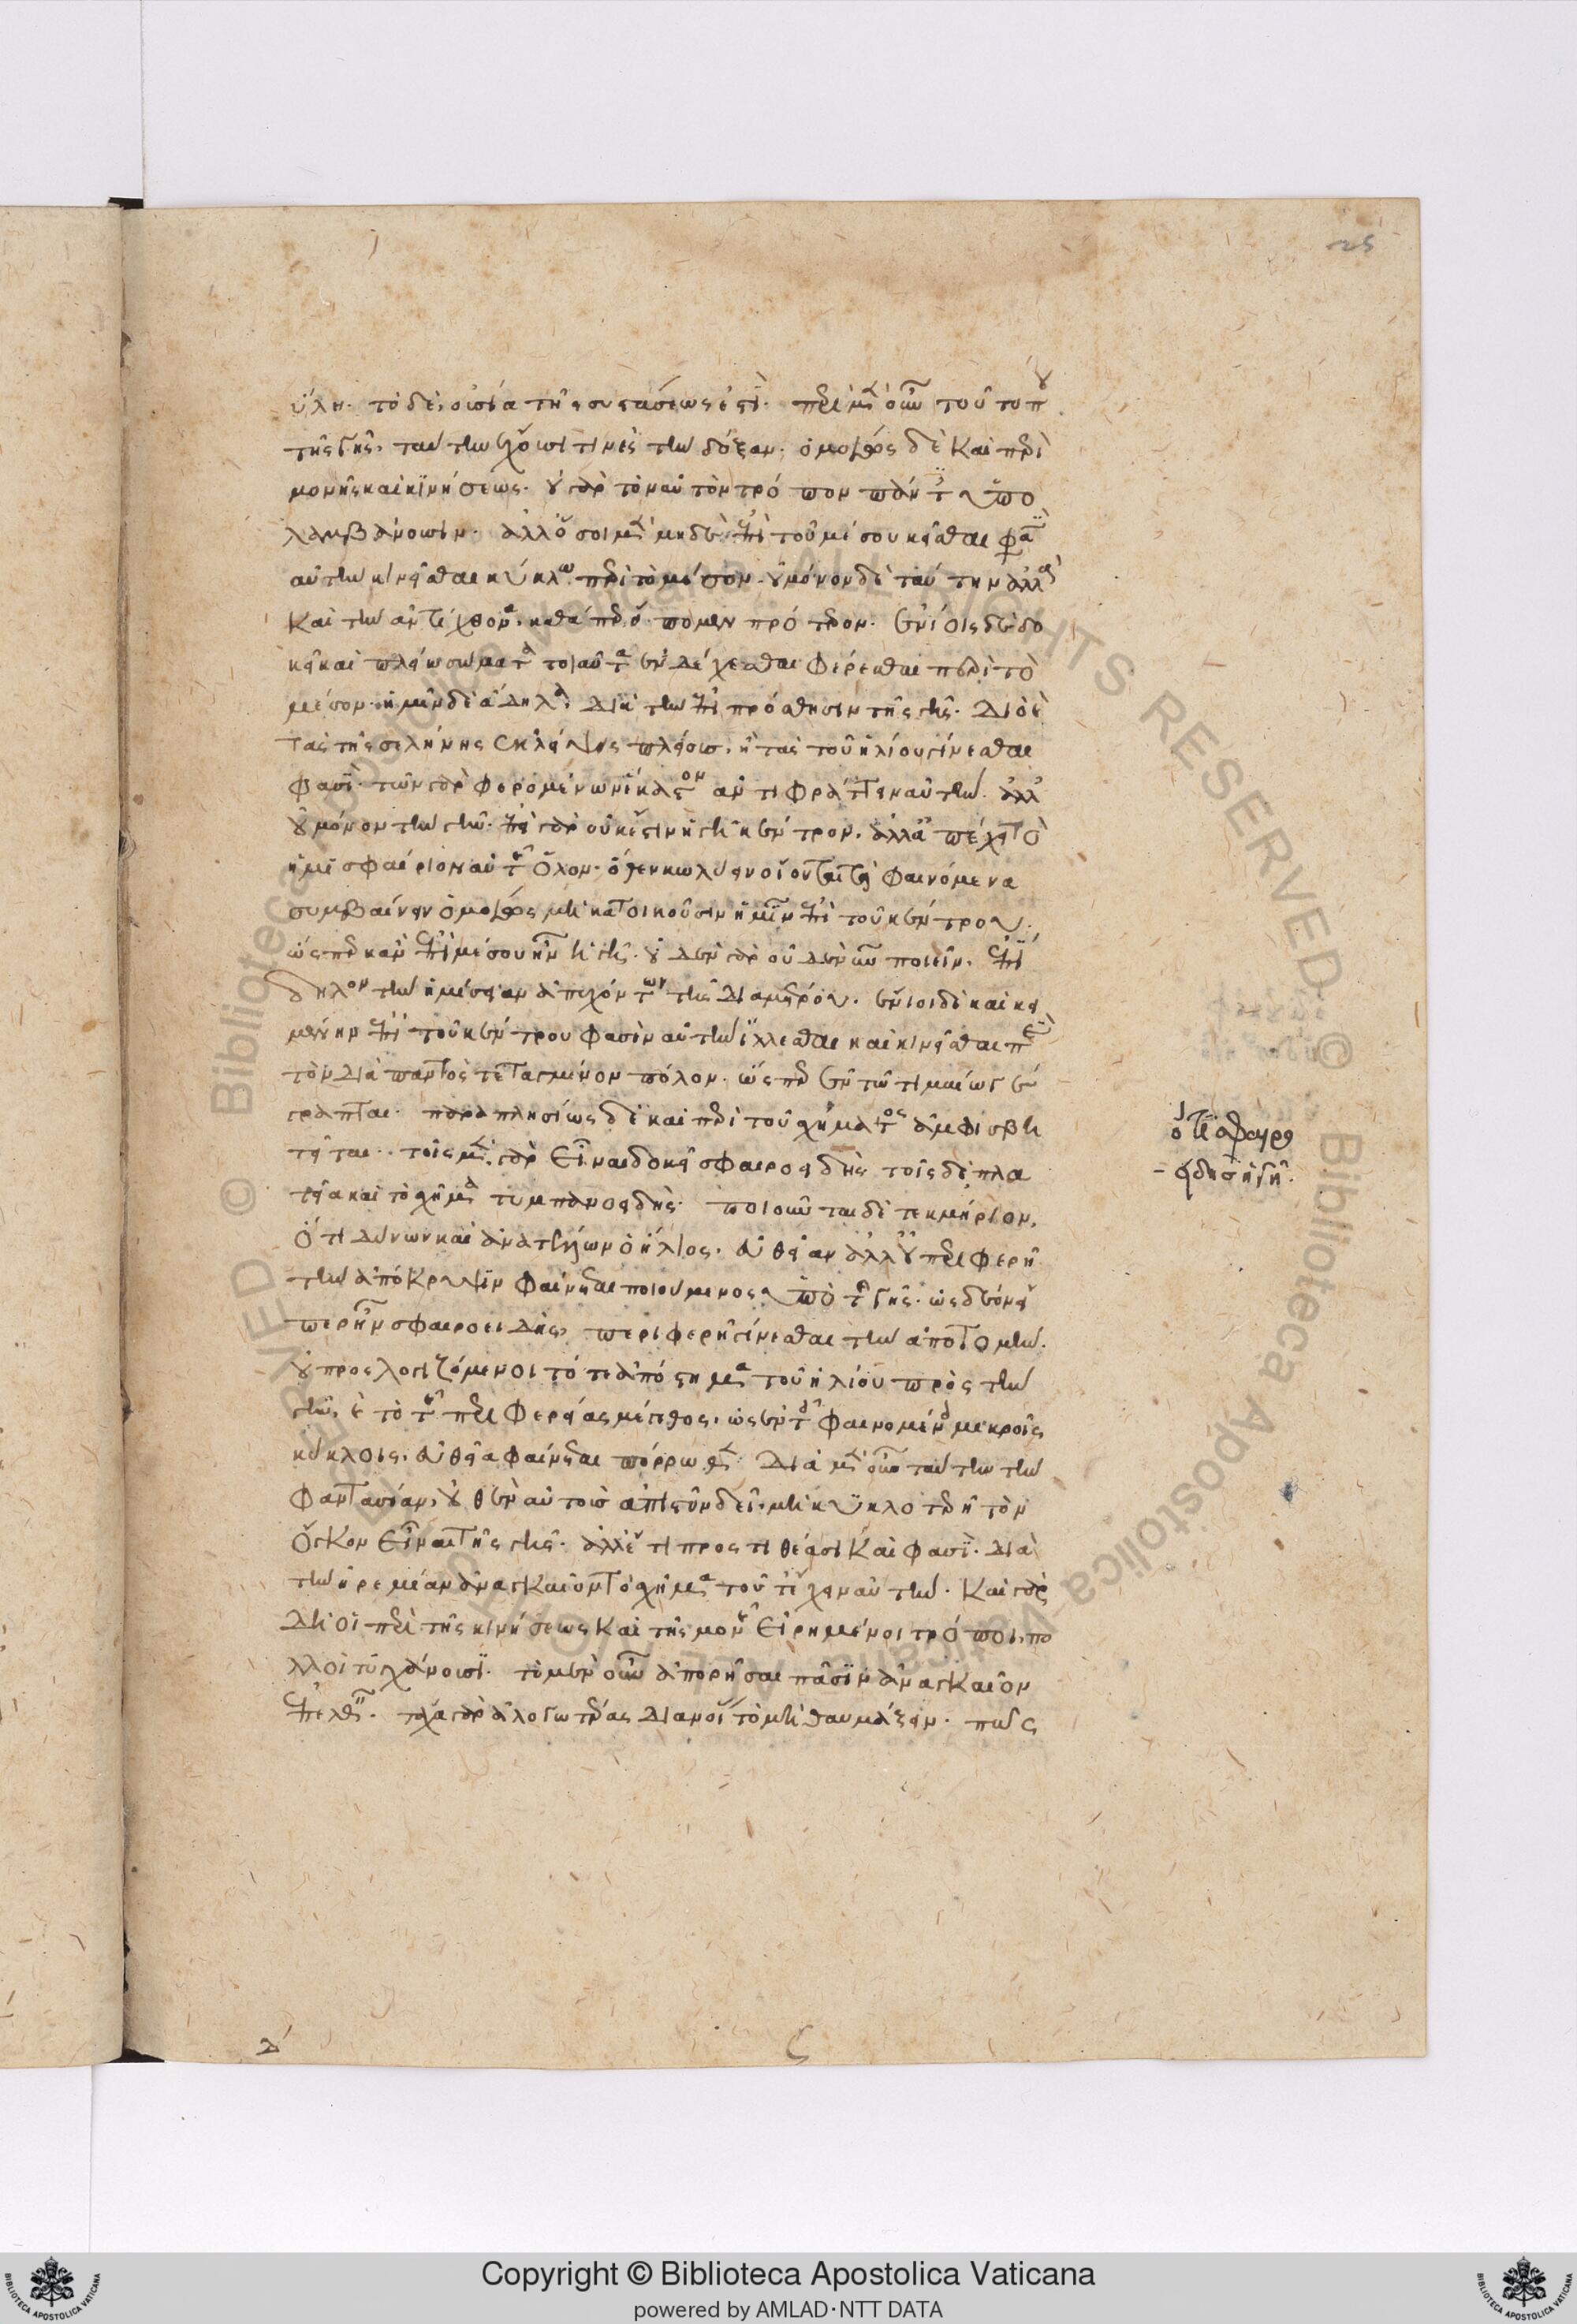 25
ὕλη. τὸ δὲ, οὐσία τῆς συστάσεως ἐστί. περὶ μὲν οὖν τοῦ τόπου
τῆς γῆς, ταύτην ἔχουσί τινες τὴν δόξαν. ὁμοίως δὲ καὶ περὶ
μονῆς καὶ κινήσεως. οὐ γὰρ τὸν αὐτὸν τρόπον πάντες ὑπο
λαμβάνουσιν. ἀλλ' ὅσοι μὲν μηδὲ ἐπὶ τοῦ μέσου κεῖσθαι φασὶν
αὐτὴν κινεῖσθαι κύκλω περὶ τὸ μέσον. οὐ μόνον δὲ ταύτην ἀλλὰ
καὶ τὴν ἀντίχθονα. καθάπερ εἴπομεν πρότερον. ἐνίοις δὲ δο
κεῖ καὶ πλείω σώματα τοιαῦτα ἐνδέχεσθαι φέρεσθαι περὶ τὸ
μέσον. ἡμῖν δὲ ἄδηλα, διὰ τὴν ἐπιπρόσθησιν τῆς γῆς. διὸ
τὰς τῆς σελήνης ἐκλείψεις πλείους, ἢ τὰς τοῦ ἡλίου γίνεσθαι
φασί. τῶν γὰρ φερομένων ἕκαστον ἀντιφράττειν αὐτὴν. ἀλλ'
οὐ μόνον τὴν γῆν. ἐπεὶ γὰρ οὐκ ἔστιν ἡ γῆ κέντρον. ἀλλ' ἀπέχει τὸ
ἡμισφαίριον αὐτῆς ὅλον. οὐθὲν κωλύειν οἴονται τὰ φαινόμενα
συμβαίνειν ὁμοίως μὴ κατοικοῦσιν ἡμῖν ἐπὶ τοῦ κέντρου.
ὥσπερ κἂν ἐπὶ μέσου ἦν ἡ γῆ. οὐδὲν γὰρ οὐδὲ νῦν ποιεῖν. ἐπί
δηλον τὴν ἡμίσειαν ἀπεχόντων τῆς διαμέτρου. ἔνιοι δὲ καὶ κει
μένην ἐπὶ τοῦ κέντρου φασὶν αὐτὴν ἵλλεσθαι καὶ κινεῖσθαι περὶ
τὸν διὰ παντὸς τεταγμένον πόλον. ὥσπερ ἐν τῶ τιμαίω γέ
γραπται. παραπλησίως δὲ καὶ περὶ τοῦ σχήματος ἀμφισβη
τεῖται. τοῖς μὲν γὰρ εἶναι δοκεῖ σφαιροειδὴς τοῖς δὲ πλα
τεῖα καὶ τὸ σχῆμα τυμπανοειδὴς. ποιοῦνται δὲ τεκμήριον,
ὅτι δύνων καὶ ἀνατέλλων ὁ ἥλιος. εὐθεῖαν ἀλλ' οὐ περιφερῆ
τὴν ἀπόκρυψιν φαίνεται ποιούμενος ὑπὸ τῆς γῆς. ὡς δέον εἴ
περ ἦν σφαιροειδὴς, περιφερῆ γίνεσθαι τὴν ἀποτομὴν.
οὐ προσλογιζόμενοι τό τε ἀπόστημα τοῦ ἡλίου πρὸς τὴν
γῆν, καὶ τὸ τῆς περιφερείας μέγεθος. ὡς ἐν τοῖς φαινομένοις μικροῖς
κύκλοις. εὐθεῖα φαίνεται πόρρωθεν. διὰ μὲν οὖν ταύτην τὴν
φαντασίαν, οὐθὲν αὐτοὺς ἀπιστεῖν δεῖ, μὴ κυκλοτερῆ τὸν
ὄγκον εἶναι τῆς γῆς. ἀλλ' ἔτι προστιθέασι καὶ φασὶ. διὰ
τὴν ἠρεμίαν ἀναγκαῖον τὸ σχῆμα τοῦτ' ἔχειν αὐτὴν. καὶ γὰρ
δὴ οἱ περὶ τῆς κινήσεως καὶ τῆς μονῆς εἰρημένοι τρόποι, πο
λλοὶ τυγχάνουσι. τὸ μὲν οὖν ἀπορῆσαι πᾶσιν ἀναγκαῖον
ἐπελθεῖν. τάχα γὰρ ἀλογωτέρας διανοίας τὸ μὴ θαυμάζειν. πῶς
ὅτι σφαιρο
ειδής ἡ γῆ.
Copyright © Biblioteca Apostolica Vaticana
powered by AMLAD·NTT DATA